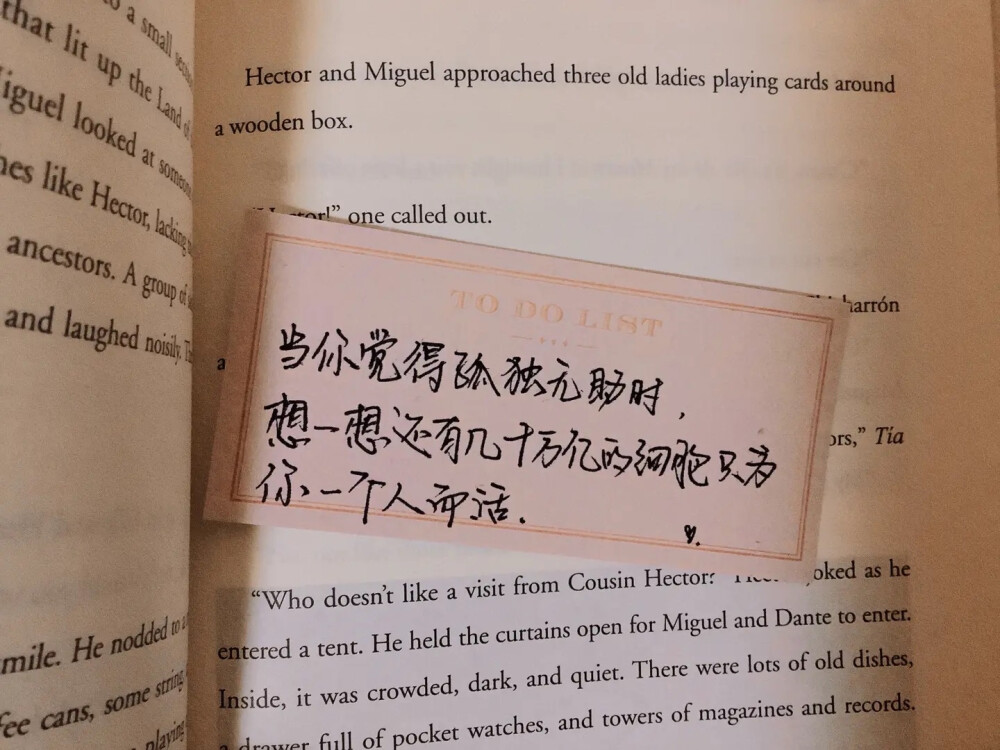 to a small
that lit up the Land
Miguel looked at someone
like Hector, lacking
ancestors. A group of
and laughed noisily.
smile. He nodded to
cans, some string,
playing
Hector and Miguel approached three old ladies playing cards around
a wooden box.
one called out.
harrón
a
Tía
TO DO LIST
当你觉得孤独无助时，
想一想还有几十万亿的细胞只为
你一个人而活.
“Who doesn’t like a visit from Cousin Hector?
oked as he
entered a tent. He held the curtains open for Miguel and Dante to enter.
Inside, it was crowded, dark, and quiet. There were lots of old dishes,
a drawer full of pocket watches, and towers of magazines and records.